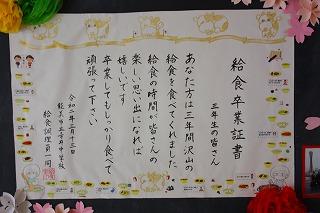 給食卒業証書
三年生の皆さん
あなた方は三年間沢山の
給食を食べてくれました
給食の時間が皆さんの
楽しい思い出になれば
嬉しいです
卒業してもしっかり食べて
頑張って下さい
令和二年三月十三日
給食調理員一同